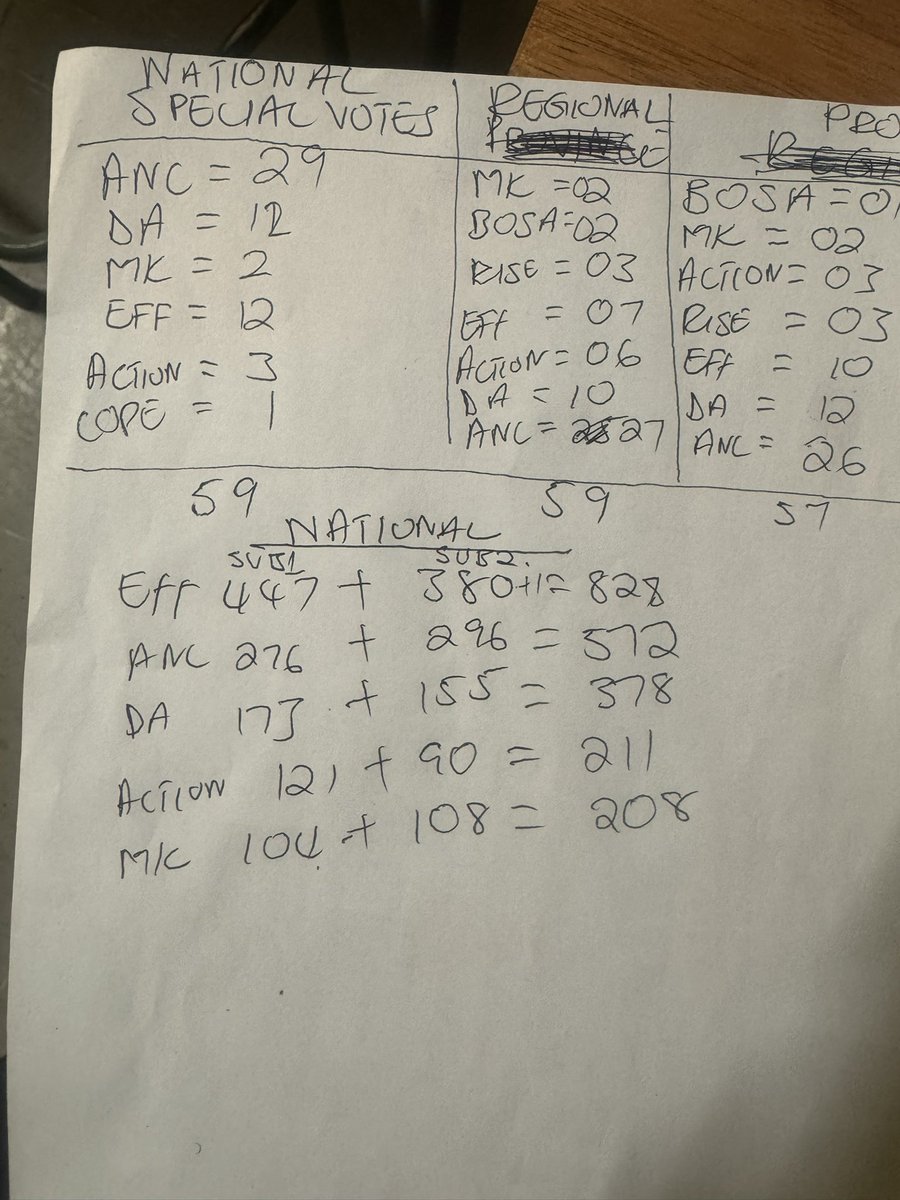 NATIONAL
SPECIAL VOTES
ANC = 29
DA = 12
MK = 2
EFF = 12
ACTION = 3
COPE = 1
59
REGIONAL
MK = 02
BOSA = 02
RISE = 03
EFF = 07
ACTION = 06
DA = 10
ANC = 27
59
PRO
BOSA = 01
MK = 02
ACTION = 03
RISE = 03
EFF = 10
DA = 12
ANC = 26
57
NATIONAL
SUB1 SUB2.
EFF 447 + 380+1= 828
ANC 276 + 296 = 572
DA 173 + 155 = 378
ACTION 121 + 90 = 211
M/K 104 + 108 = 208